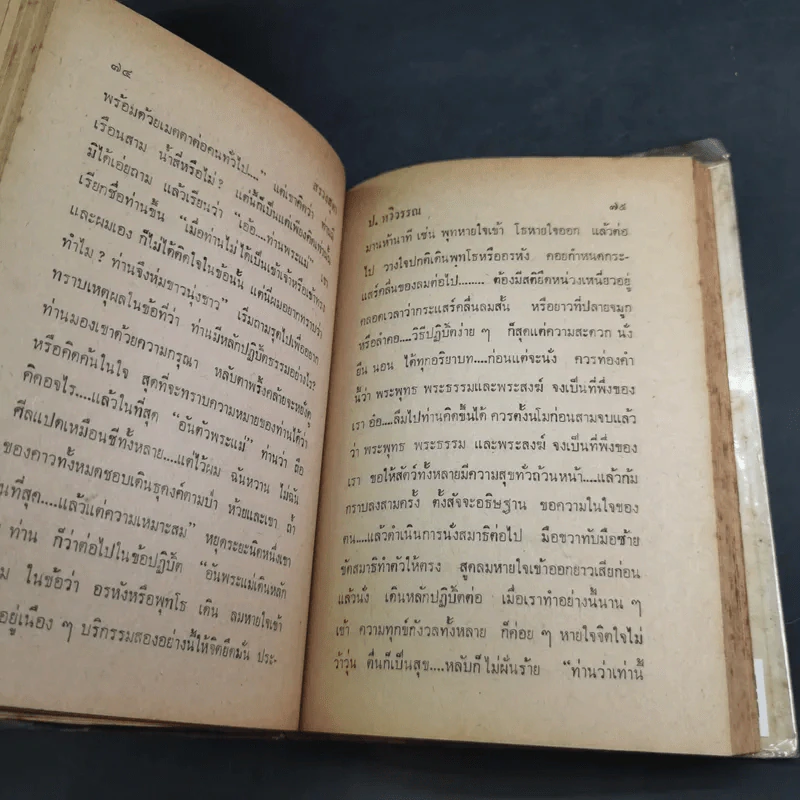 ๗๔
สรวงสุดา
พร้อมด้วยเมตตาต่อคนทั่วไป...." แต่เขาคิดว่า ท่านมี
เรือนสาม น้ำสี่หรือไม่? แต่นี้ก็เป็นแต่เพียงคิดเท่านั้น
มิได้เอ่ยถาม แล้วเรียนว่า "เอ้อ....ท่านพระแม่" เขา
เรียกชื่อท่านขึ้น "เมื่อท่านไม่ได้เป็นเข้าเจ้าหรือเข้าทรง
และผมเอง ก็ไม่ได้คิดใจในข้อนั้น แต่นี่ผมอยากทราบว่า
ทำไม? ท่านจึงห่มขาวนุ่งขาว" เริ่มถามรุดไปเพื่ออยาก
ทราบเหตุผลในข้อที่ว่า ท่านมีหลักปฏิบัติธรรมอย่างไร?
ท่านมองเขาด้วยความกรุณา หลับตาพริ้งคล้ายจะหยั่งดู
หรือคิดค้นในใจ สุดที่จะทราบความหมายของท่านได้ว่า
คิดอะไร....แล้วในที่สุด "อันตัวพระแม่" ท่านว่า ถือ
ศีลแปดเหมือนชีทั้งหลาย....แต่ไว้ผม ฉันหวาน ไม่ฉัน
ของคาวทั้งหมดชอบเดินธุดงค์ตามป่า ห้วยและเขา ถ้ำ
นที่สุด....แล้วแต่ความเหมาะสม" หยุดระยะนิดหนึ่งเขา
ท่าน ก็ว่าต่อไปในข้อปฏิบัติ "อันพระแม่เดินหลัก
ม ในข้อว่า อรหังหรือพุทโธ เดิน ลมหายใจเข้า
อยู่เนือง ๆ บริกรรมสองอย่างนี้ให้จิตยึดมั่น ประ-
ป. ทวีวรรณ
๗๕
มานห้านาที เช่น พุทหายใจเข้า โธหายใจออก แล้วต่อ
ไป วางใจปกติเดินพุทโธหรืออรหัง คอยกำหนดกระ-
แสร์คลื่นของลมต่อไป........ ต้องมีสติยึดหน่วงเหนี่ยวอยู่
ตลอดเวลาว่ากระแสร์คลื่นลมสั้น หรือยาวที่ปลายจมูก
หรือลำคอ....วิธีปฏิบัติง่าย ๆ ก็สุดแต่ความสะดวก นั่ง
ยืน นอน ได้ทุกอริยาบท....ก่อนแต่จะนั่ง ควรท่องคำ
นี้ว่า พระพุทธ พระธรรมและพระสงฆ์ จงเป็นที่พึ่งของ
เรา อ๋อ....ลืมไปท่านคิดขึ้นได้ ควรตั้งนโมก่อนสามจบแล้ว
ว่า พระพุทธ พระธรรม และพระสงฆ์ จงเป็นที่พึ่งของ
เรา ขอให้สัตว์ทั้งหลายมีความสุขทั่วถ้วนหน้า....แล้วก้ม
กราบลงสามครั้ง ตั้งสัจจะอธิษฐาน ขอความในใจของ
ตน....แล้วดำเนินการนั่งสมาธิต่อไป มือขวาทับมือซ้าย
ขัดสมาธิทำตัวให้ตรง สูดลมหายใจเข้าออกยาวเสียก่อน
แล้วนั่ง เดินหลักปฏิบัติต่อ เมื่อเราทำอย่างนี้นาน ๆ
เข้า ความทุกข์กังวลทั้งหลาย ก็ค่อย ๆ หายใจจิตใจไม่
ว้าวุ่น ตื่นก็เป็นสุข....หลับก็ไม่ฝันร้าย "ท่านว่าเท่านี้